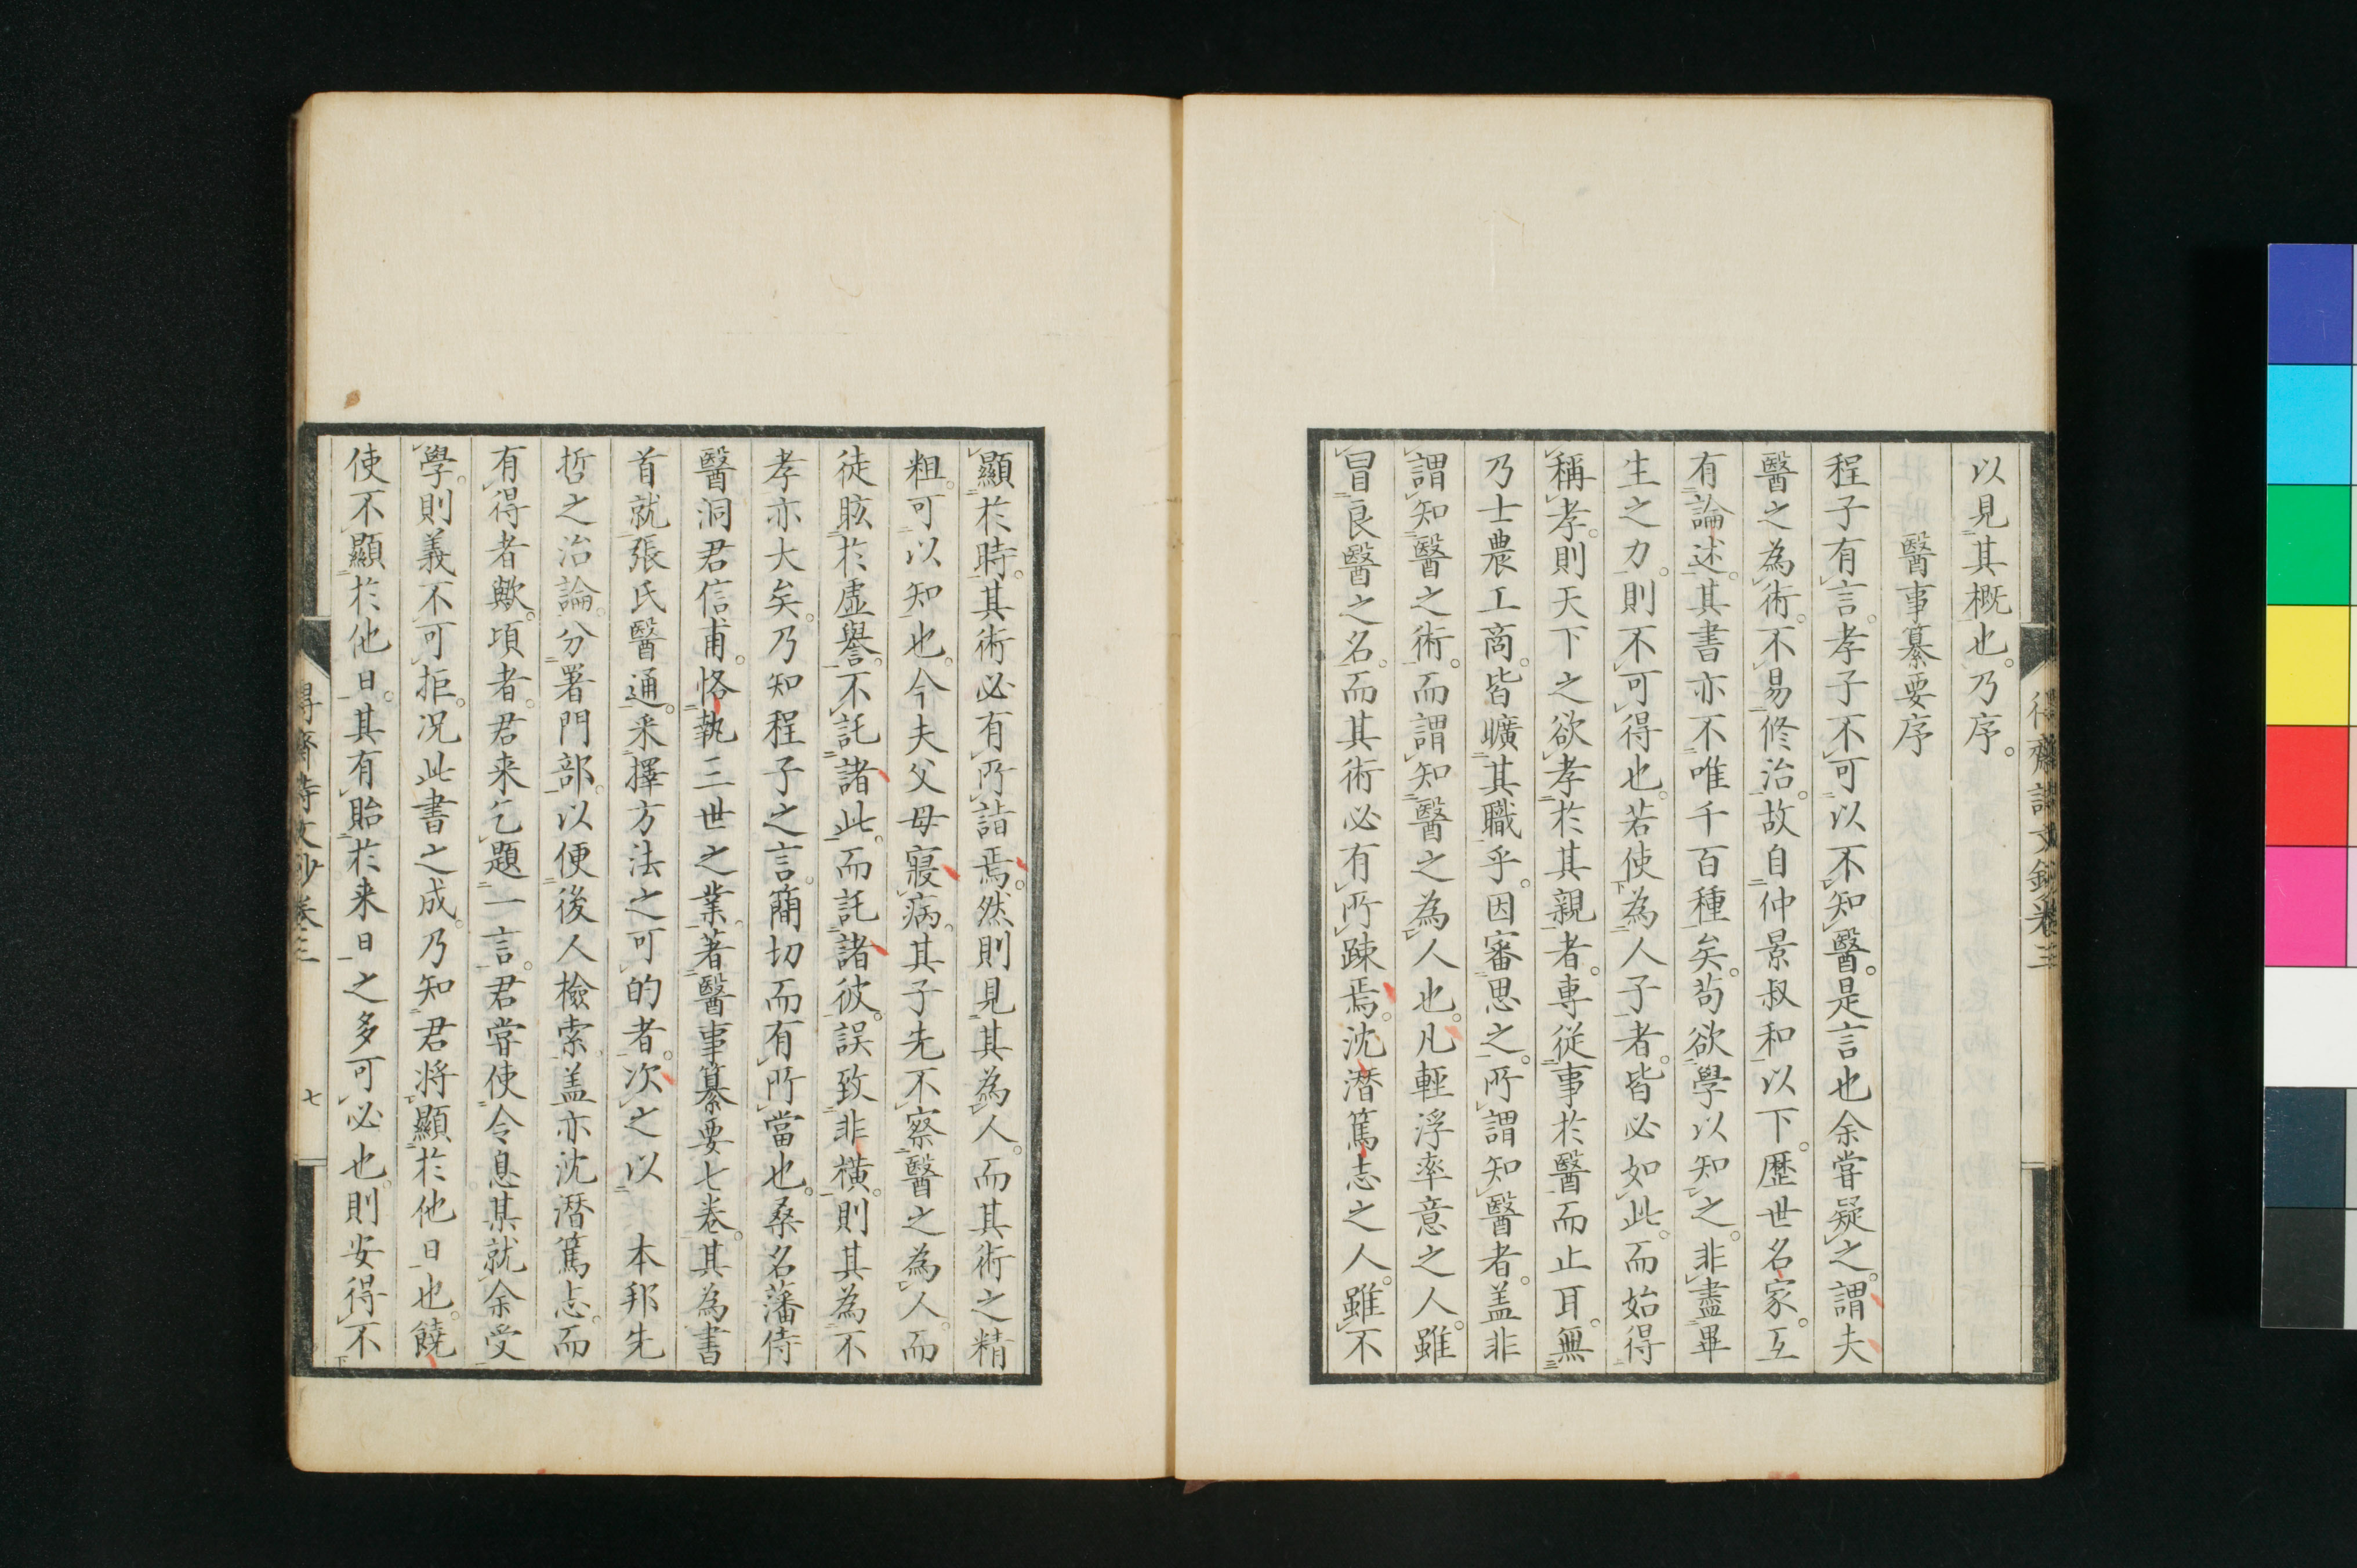 以見其概也。乃序。
醫事纂要序
程子有言。孝子不可以不知醫。是言也余嘗疑之。謂夫
醫之為術。不易修治。故自仲景叔和以下。歴世名家。互
有論述。其書亦不唯千百種矣。苟欲學以知之。非盡畢
生之力。則不可得也。若使為人子者。皆必如此。而始得
稱孝。則天下之欲孝於其親者。専従事於醫而止耳。無
乃士農工商。皆曠其職乎。因審思之。所謂知醫者。盖非
謂知醫之術。而謂知醫之為人也。凡輕浮率意之人。雖
冒良醫之名。而其術必有所踈焉。沈潜篤志之人。雖不
顯於時。其術必有所詣焉。然則見其為人。而其術之精
粗。可以知也。今夫父母寝病。其子先不察醫之為人。而
徒眩於虚譽。不託諸此。而託諸彼。誤致非橫。則其為不
孝亦大矣。乃知程子之言。簡切而有所當也。桑名藩侍
醫洞君信甫。恪執三世之業。著醫事纂要七卷。其為書
首就張氏醫通。采擇方法之可的者。次之以 本邦先
哲之治論。分署門部。以便後人檢索。盖亦沈潜篤志。而
有得者歟。頃者。君来乞題一言。君嘗使令息某就余受
學。則義不可拒。況此書之成。乃知君将顯於他日也。饒
使不顯於他日。其有貽於来日之多。可必也。則安得不
得齋詩文鈔卷三
七